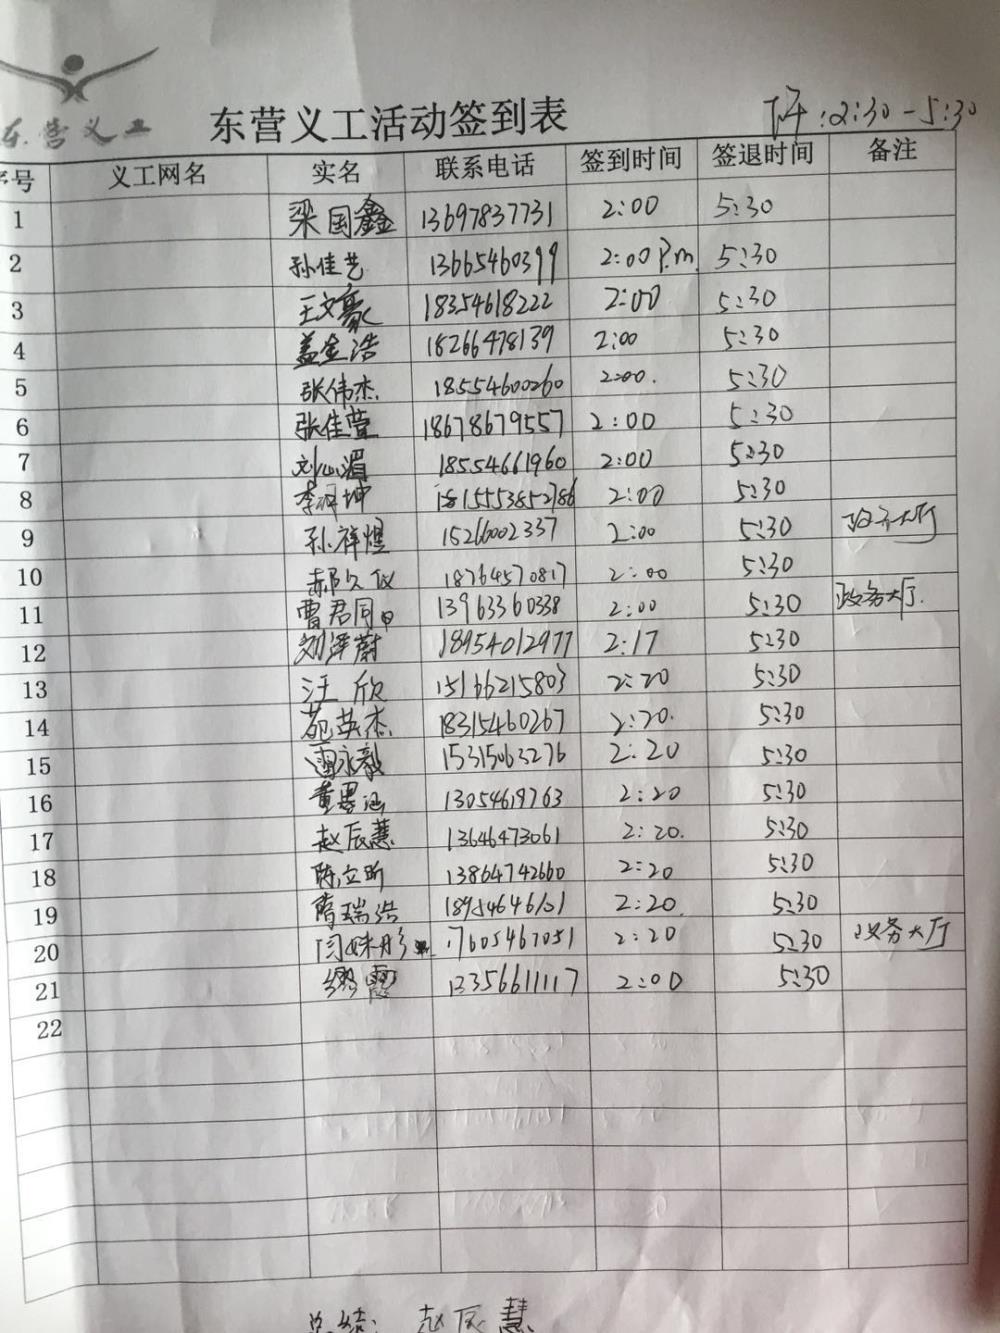 东营义工
东营义工活动签到表
下午:2:30-5:30
序号 义工网名 实名 联系电话 签到时间 签退时间 备注
1 梁国鑫 13697837731 2:00 5:30
2 孙佳艺 13665460399 2:00 P.m 5:30
3 王文豪 18354618222 2:00 5:30
4 盖金浩 18266478139 2:00 5:30
5 张伟杰 18554600260 2:00. 5:30
6 张佳萱 18678679557 2:00 5:30
7 刘山湄 18554661960 2:00 5:30
8 2:00 5:30
9 孙梓煜 15266002337 2:00 5:30 政务大厅
10 郝久仪 18764570817 2:00 5:30
11 曹君同 13963360338 2:00 5:30 政务大厅.
12 刘泽蔚 18954012977 2:17 5:30
13 汪欣 15166215803 2:20 5:30
14 苑英杰 18315460267 2:20. 5:30
15 雷永毅 15315063276 2:20 5:30
16 13054619763 2:20 5:30
17 赵辰慧 13646473061 2:20. 5:30
18 陈立昕 13864742660 2:20 5:30
19 隋瑞浩 2:20. 5:30
20 闫姝彤 17605467051 2:20 5:30 政务大厅
21 13356611117 2:00 5:30
22
总结: 赵辰慧